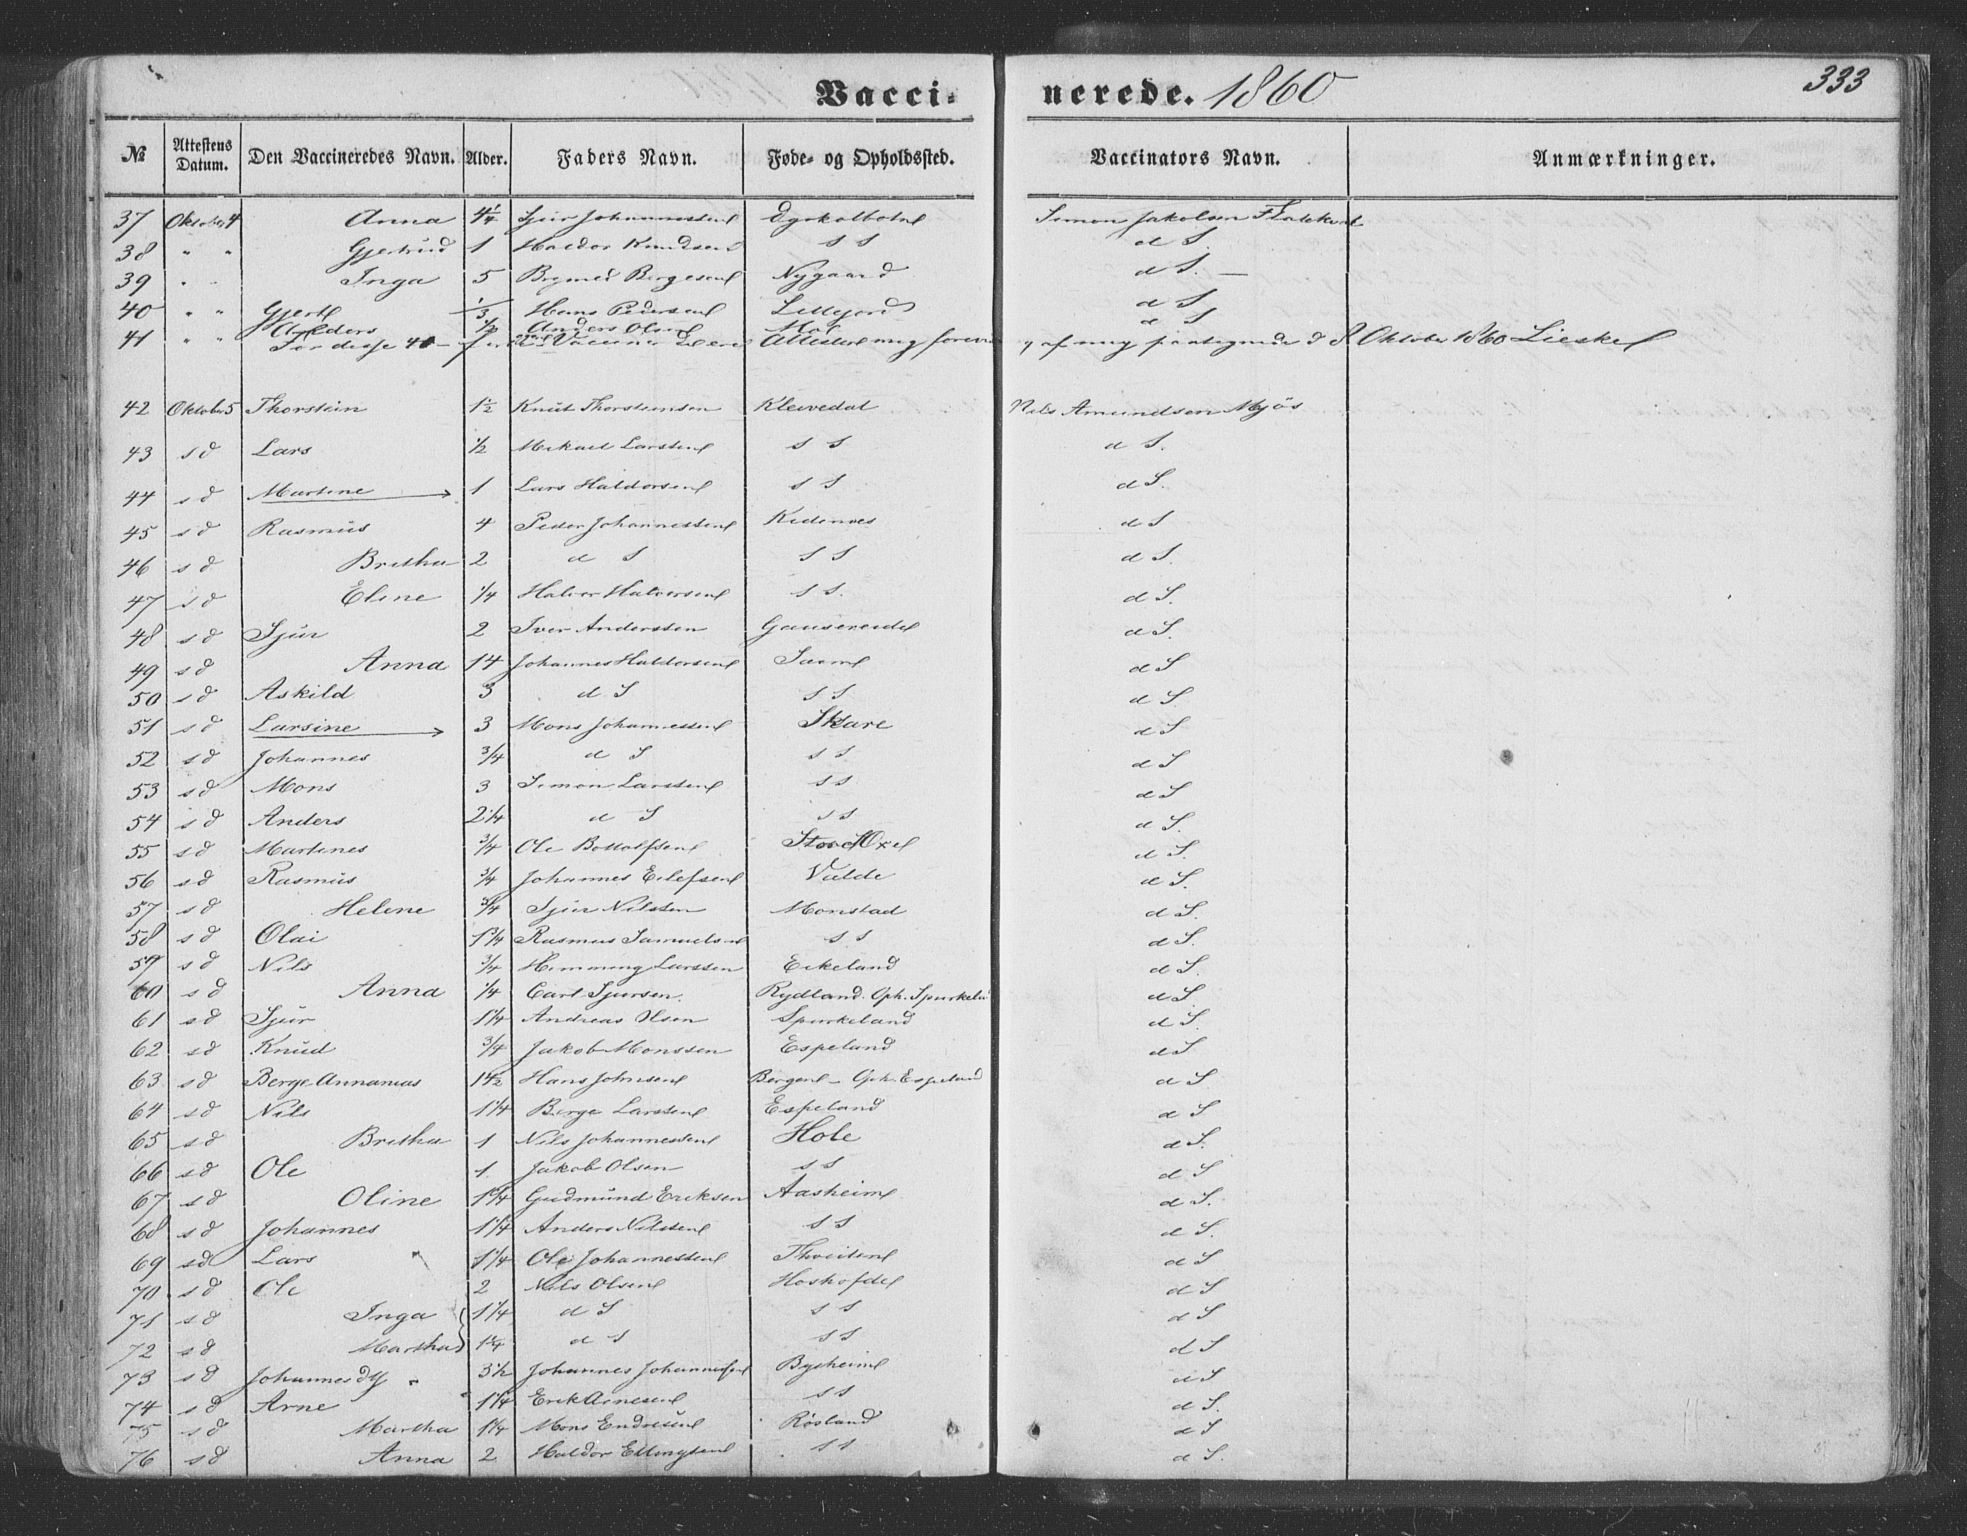 Vaccinerede. 1860 333
No Attestens Datum. Den Vaccineredes Navn. Alder. Faders Navn. Føde- og Opholdssted. Vaccinators Navn. Anmærkninger.
37 Oktober 4 Anna 4¼ Sjur Johannessen Simon Jakobsen
38 " " Gjertrud 1 Haldor Knudsen s s d S.
39 " " Inga 5 Bergesen Nygaard d S.
40 " " Gjert 1/3 Hans Pedersen Lillejord d S
41 " " Anders ½ Anders Olsen d S
Oktober 1860
42 Oktober 5 Thorstein 1½ Knut Thorsteinsen Kleivedal Nils Amundsen Mjøs
43 s d Lars ½ Mikael Larssen s s d S.
44 s d Martine 1 Lars Haldorsen s s d S.
45 s d Rasmus 4 Peder Johannessen d S
46 s d Britha 2 d S s s d S.
47 s d Eline ¼ Halvor Halvorsen s s. d S.
48 s d Sjur 2 Iver Anderssen Gausereidel d S.
49 s d Anna 14 Johannes Haldorsen d S
50 s d Askild 3 d S s s d S
51 s d Larsine 3 Mons Johannessen Skare d S
52 s d Johannes ¾ d S s s d S
53 s d Mons 3 Simon Larssen s s d S
54 s d Anders 2¼ d S s s d S.
55 s d Martines ¾ Ole Bottolfsen d S.
56 s d Rasmus ¾ Johannes Eilefsen Valde d S.
57 s d Helene ¾ Sjur Nilssen Monstad d S.
58 s d Olai 1¾ Rasmus Samuelsen s s d S.
59 s d Nils ¾ Hemming Larssen Eikeland d S.
60 s d Anna ¼ Carl Sjursen. Rydland. Oph. Spurkeln d S.
61 s d Sjur 1¼ Andreas Olsen Spurkeland d S.
62 s d Knud ¾ Jakob Monssen Espeland d S
63 s d Berge Annanias 1½ Hans Johnsen Bergen - Oph. Espeland d S
64 s d Nils 1¼ Berge Larssen Espeland d S
65 s d Britha 1 Nils Johannessen Hole d S.
66 s d Ole 1. Jakob Olsen s s d S
67 s d Oline 1¾ Gudmund Eriksen Aasheim d S.
68 s d Johannes 1¼ Anders Nilssen s s d S.
69 s d Lars 1¼ Ole Johannessen Thveiten d S
70 s d Ole 2 Nils Olsen d S
71 s d Inga 1¼ d S s s d S
72 s d Martha 1¼ d S s s d S
73 s d Johannes 3½ Johannes Johannesen Bysheim d S
74 s d Arne 1¼ Erik Arnesen s s d S.
75 s d Martha 1¼ Mons Endresen Røsland d S
76 s d Anna 2 Haldor Ellingsen s s d S.